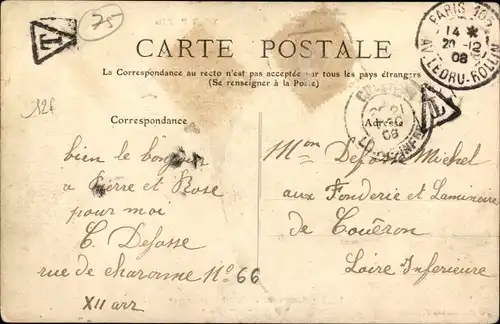 75
T
PARIS
14 *
20 -12
08
AV. LEDRU-ROLLIN
CARTE POSTALE
La Correspondance au recto n'est pas acceptée par tous les pays étrangers
(Se renseigner à la Poste)
T
08
12f
Correspondance
Adresse
bien le bonjour
a Pierre et Rose
pour moi
C. Defosse
rue de charonne No 66
XII arr
Mon Defosse Michel
aux Fonderie et Laminoire
de Couëron
Loire Inferieure